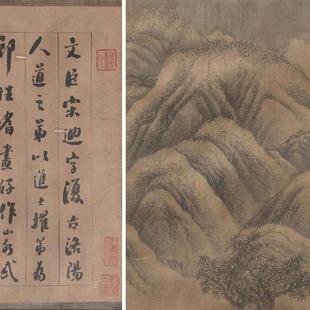 文臣宋迪字復古洛陽
人道之弟以進士擢第為
郎性嗜畫好作山水或